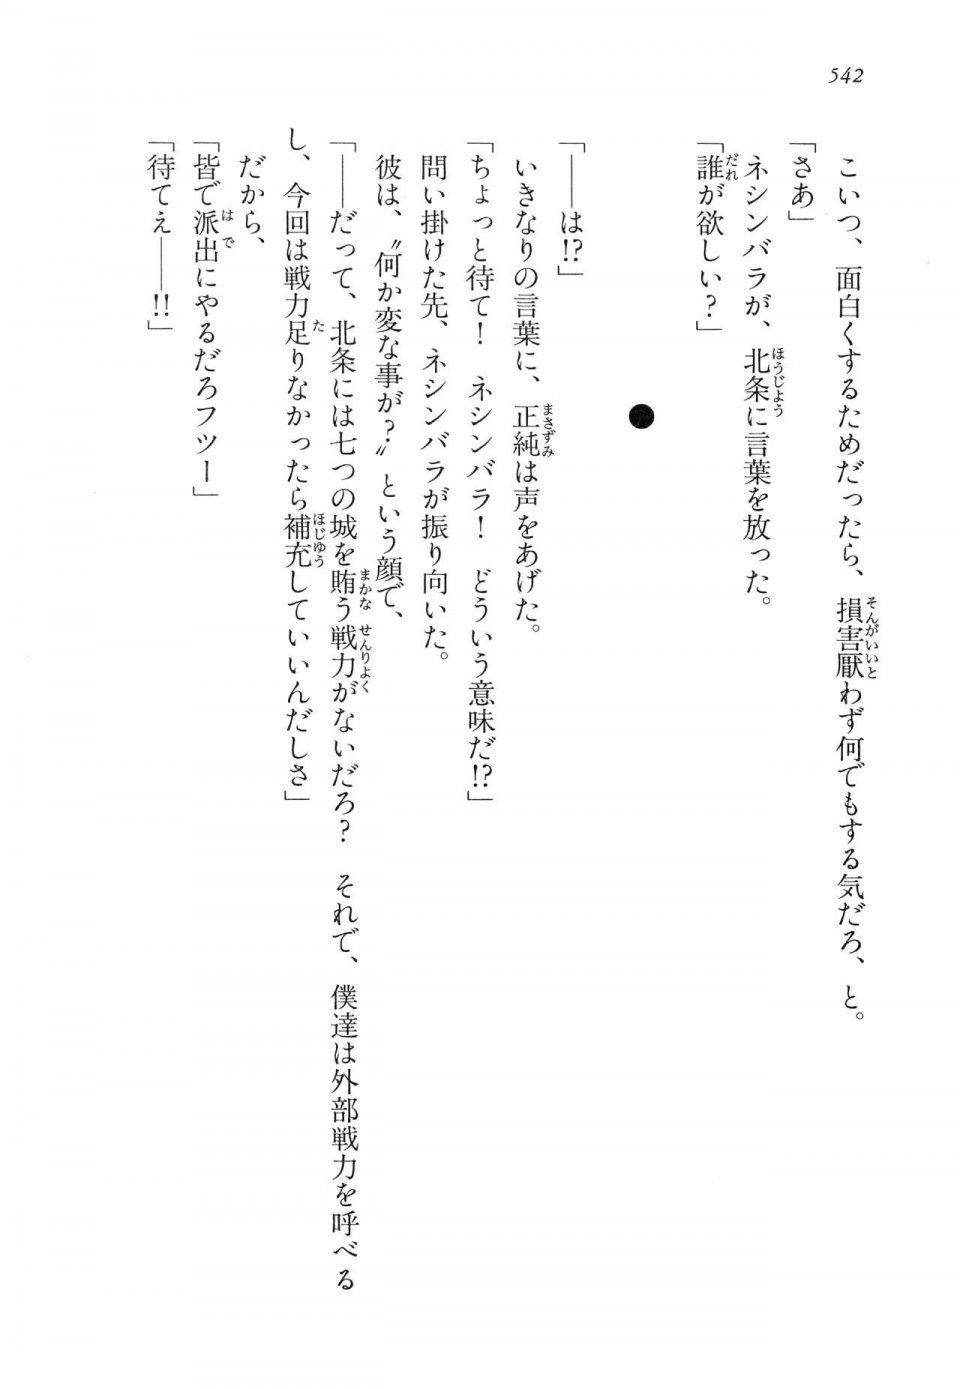 542
こいつ、面白くするためだったら、損害厭わず何でもする気だろ、と。
「さあ」
ネシンバラが、北条に言葉を放った。
「誰が欲しい？」
●
「――は!?」
いきなりの言葉に、正純は声をあげた。
「ちょっと待て！　ネシンバラ！　どういう意味だ!?」
問い掛けた先、ネシンバラが振り向いた。
彼は、〝何か変な事が？〟という顔で、
「――だって、北条には七つの城を賄う戦力がないだろ？　それで、僕達は外部戦力を呼べる
し、今回は戦力足りなかったら補充していいんだしさ」
だから、
「皆で派出にやるだろフツー」
「待てぇ――!!」